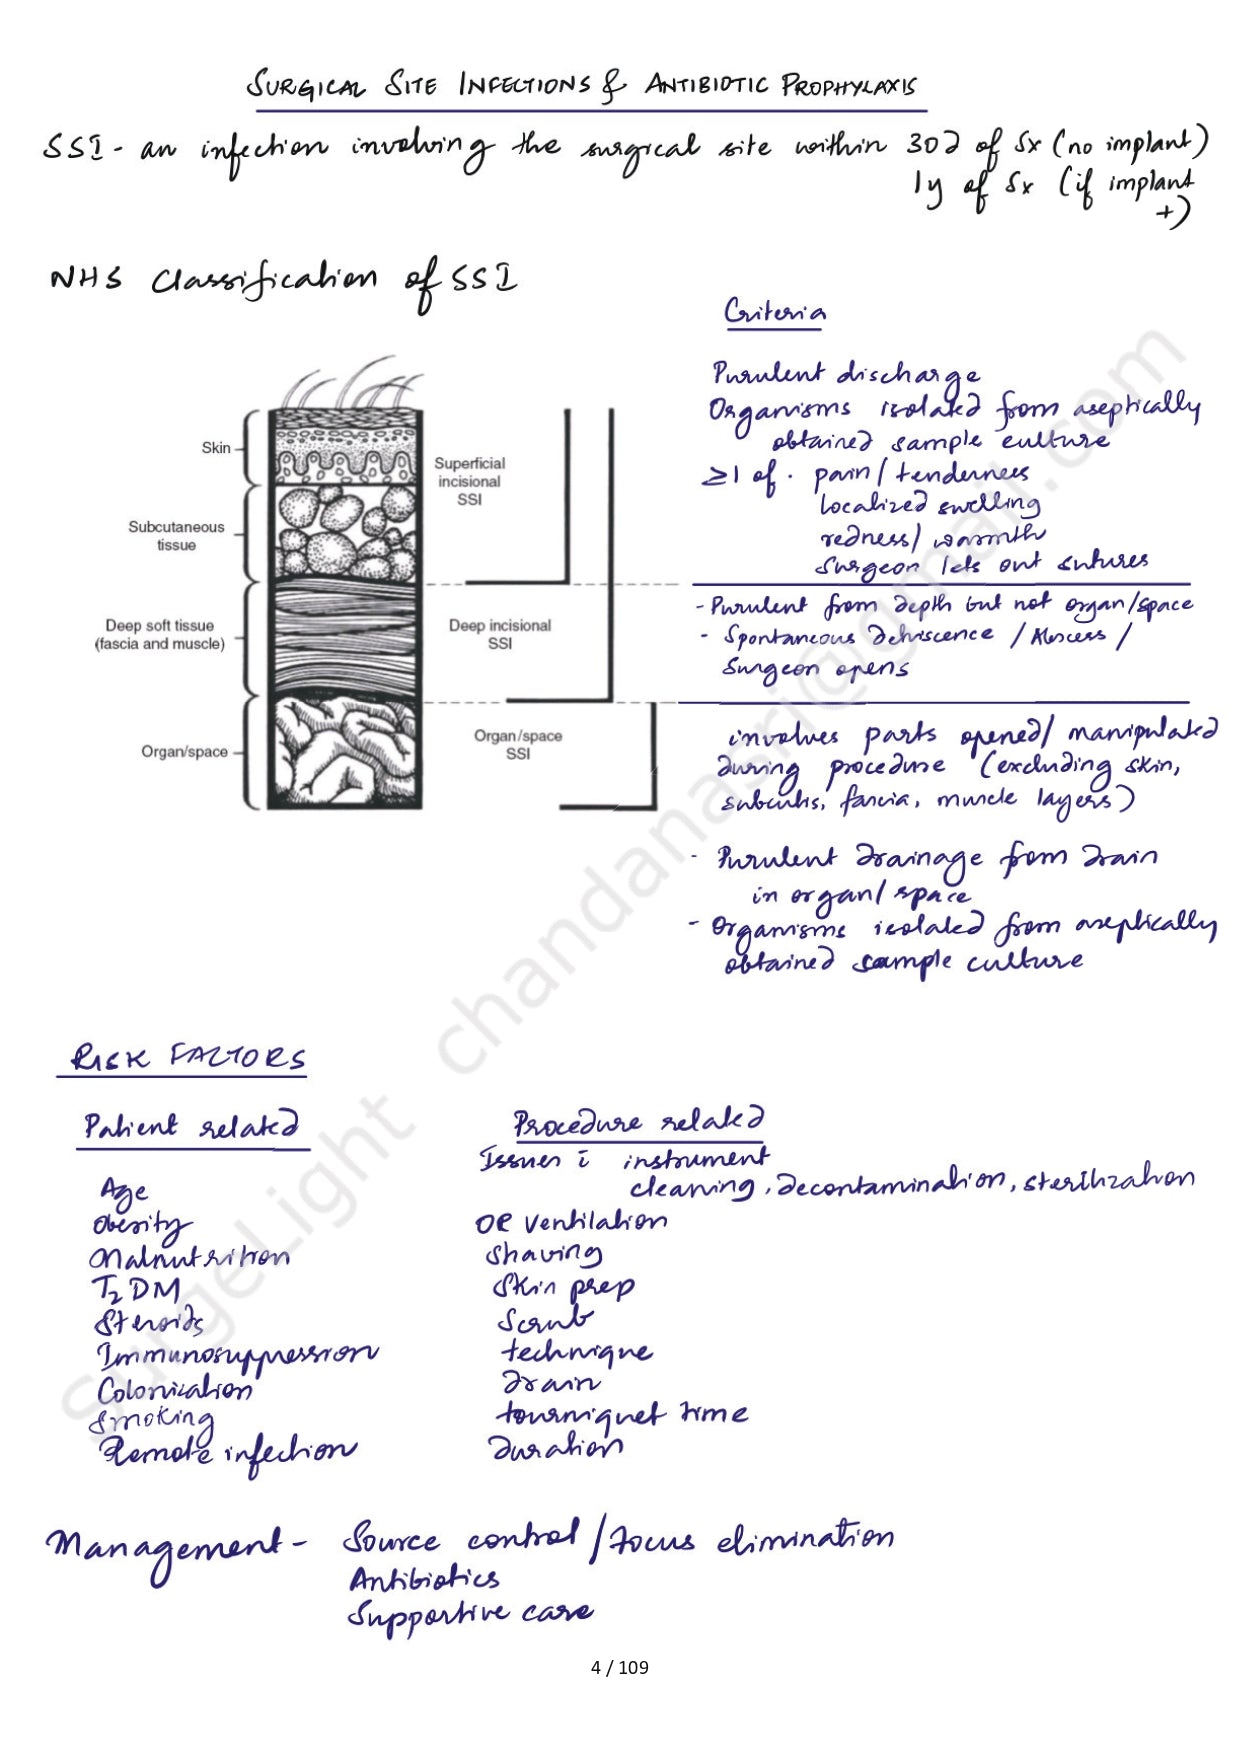 SURGICAL SITE INFECTIONS & ANTIBIOTIC PROPHYLAXIS
SSI - an infection involving the surgical site within 30d of Sx (no implant)
1y of Sx (if implant
+)
NHS Classification of SSI
Criteria
Purulent discharge
Organisms isolated from aseptically
obtained sample culture
≥1 of · pain/tenderness
localized swelling
redness/warmth
Surgeon lets out sutures
- Purulent from depth but not organ/space
- Spontaneous dehiscence / Abscess /
Surgeon opens
involves parts opened/manipulated
during procedure (excluding skin,
subcutis, fascia, muscle layers)
- Purulent drainage from drain
in organ/space
- Organisms isolated from aseptically
obtained sample culture
Skin
Subcutaneous
tissue
Deep soft tissue
(fascia and muscle)
Organ/space
Superficial
incisional
SSI
Deep incisional
SSI
Organ/space
SSI
RISK FACTORS
Patient related
Age
Obesity
Malnutrition
T2DM
Steroids
Immunosuppression
Colonization
Smoking
Remote infection
Procedure related
Issues c̄ instrument
cleaning, decontamination, sterilization
OR ventilation
Shaving
Skin prep
Scrub
technique
drain
tourniquet time
duration
Management - Source control/focus elimination
Antibiotics
Supportive care
surgeLight chandanasri@gmail.com
4 / 109